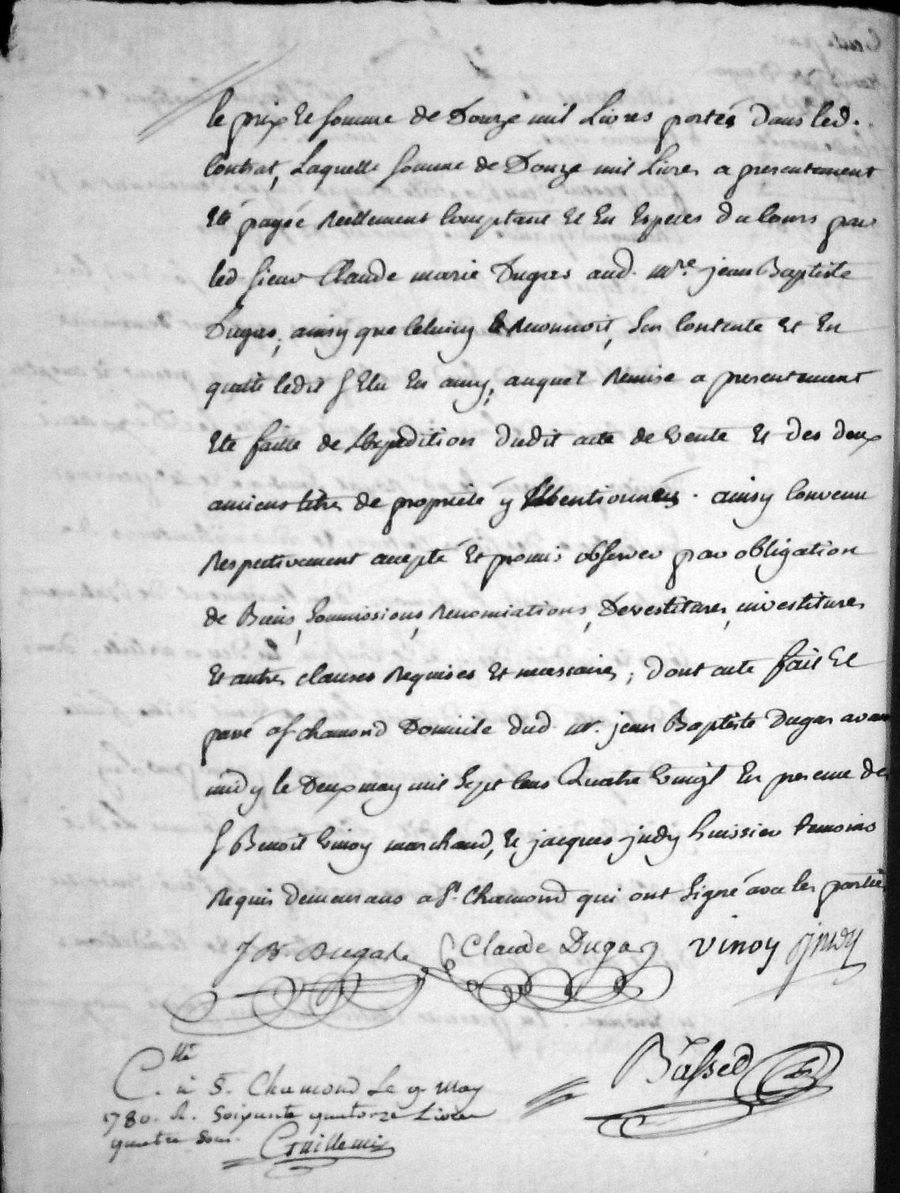 le prix et somme de Douze mil Livres portés dans led.
Contrat, Laquelle somme de Douze mil Livres a presentement
Eté payée Reellement Comptant Et En Especes du Cours par
led sieur Claude marie Dugas aud. mre jean Baptiste
Dugas, ainsy que celuicy le Reconnoit, s'en contente Et En
quitte ledit s Elu En amy, auquel Remise a presentement
Eté faitte de L'Expedition dudit acte de vente Et des deux
anciens titres de proprieté y Mentionnés. ainsy Convenu
Respectivement accepté Et promis observer par obligation
de Biens, Soumissions, Renonciations, Devestitures, investitures
Et autres clauses Requises Et necessaires; dont acte fait Et
passé a st chamond Domicile dud. mr. jean Baptiste Dugas avant
midy le Deux may mil Sept Cens Quatre vingt En presence des
s Benoit vinoy marchand, & jacques judy huissier temoins
Requis demeurans a St. Chamond qui ont Signé avec les parties
J B Dugas Claude Dugas vinoy judy
Bassed
Clle
C. à St. Chamond Le 9 May
1780. R. Soixante quatorze Livres
quatre Sous.
Guillemin